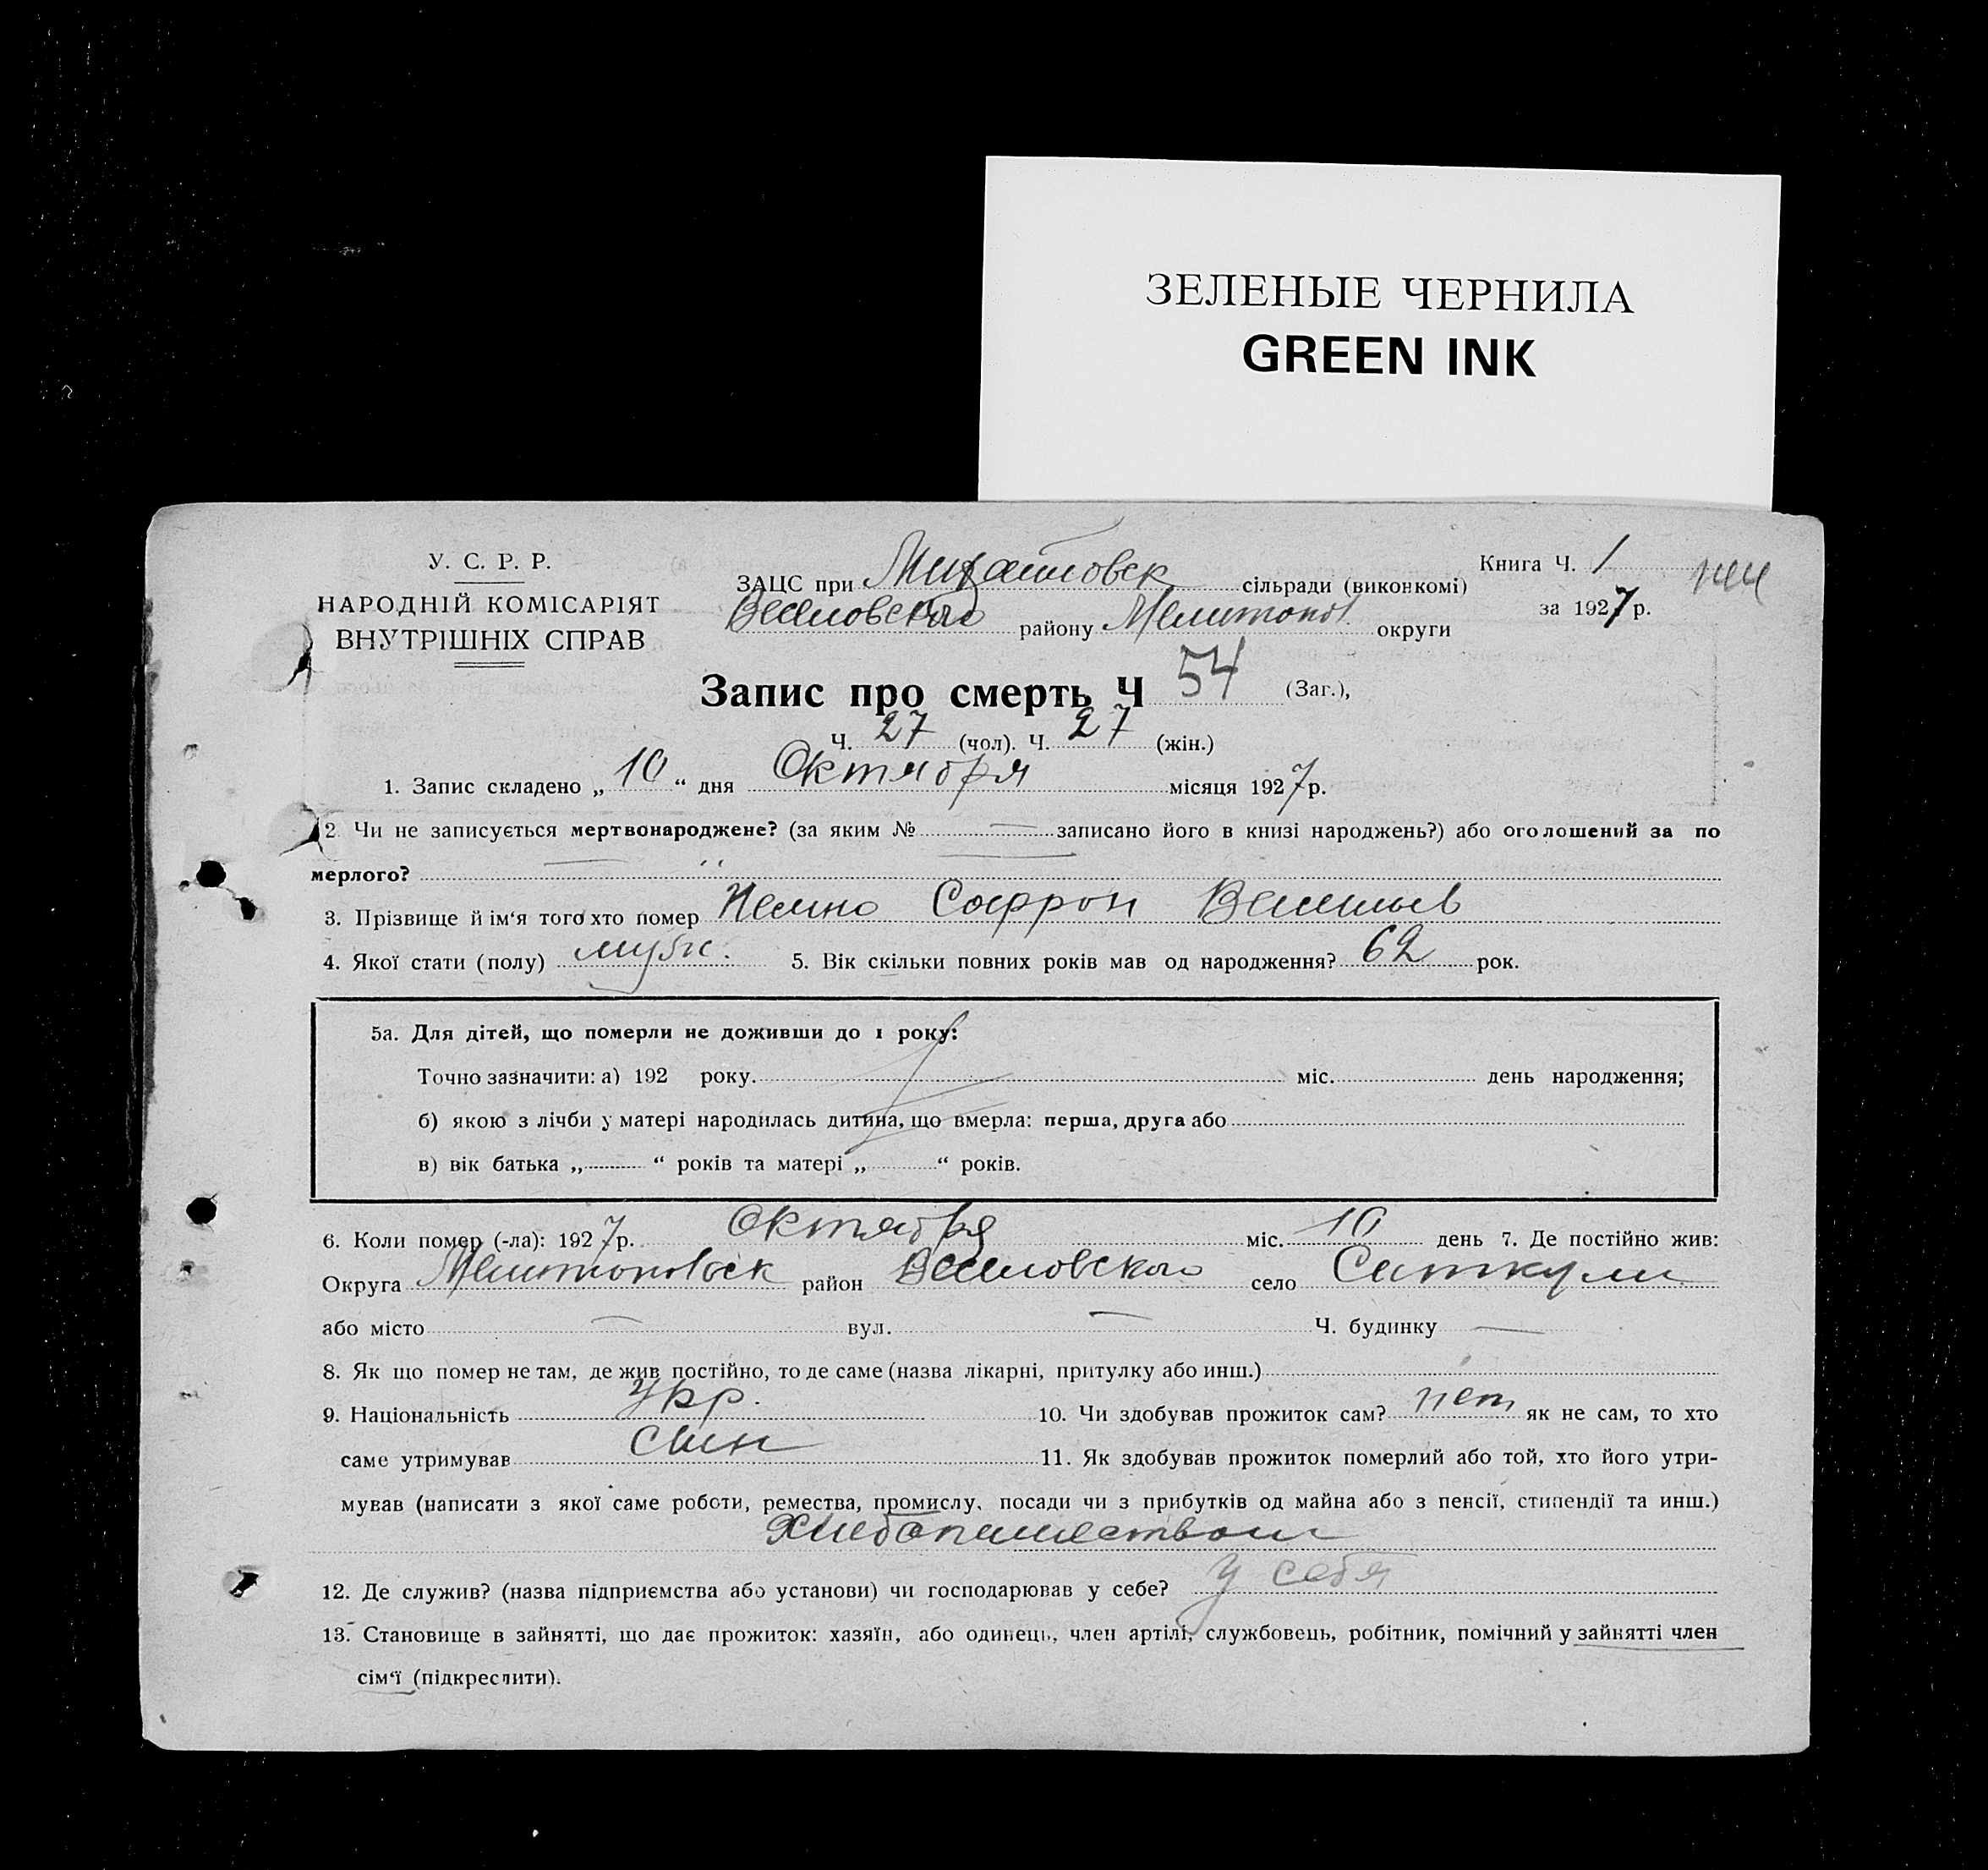 ЗЕЛЕНЫЕ ЧЕРНИЛА
GREEN INK
У. С. Р. Р.
НАРОДНІЙ КОМІСАРІЯТ
ВНУТРІШНІХ СПРАВ
ЗАЦС при Михайловск сільради (виконкомі)
Веселовского району Мелитопол. округи
Книга Ч. 1
за 1927 р.
Запис про смерть Ч 54 (Заг.),
Ч. 27 (чол). Ч. 27 (жін.)
1. Запис складено „ 10 “ дня Октября місяця 1927 р.
2 Чи не записується мертвонароджене? (за яким № — записано його в книзі народжень?) або оголошений за по
мерлого?
3. Прізвище й ім‘я того хто помер Софрон
4. Якої стати (полу) муж. 5. Вік скільки повних років мав од народження? 62 рок.
5а. Для дітей, що померли не доживши до 1 року:
Точно зазначити: а) 192 року. міс. день народження;
б) якою з лічби у матері народилась дитина, що вмерла: перша, друга або
в) вік батька „ “ років та матері „ “ років.
6. Коли помер (-ла): 1927 р. Октября міс. 10 день 7. Де постійно жив:
Округа Мелитопольск район Веселовского село
або місто — вул. — Ч. будинку —
8. Як що помер не там, де жив постійно, то де саме (назва лікарні, притулку або инш.)
9. Національність Укр. 10. Чи здобував прожиток сам? нет як не сам, то хто
саме утримував сын 11. Як здобував прожиток померлий або той, хто його утри-
мував (написати з якої саме роботи, ремества, промислу, посади чи з прибутків од майна або з пенсії, стипендії та инш.)
Хлебопашеством
12. Де служив? (назва підприємства або установи) чи господарював у себе? у себя
13. Становище в зайнятті, що дає прожиток: хазяїн, або одинець, член артілі, службовець, робітник, помічний у зайнятті член
сім‘ї (підкреслити).